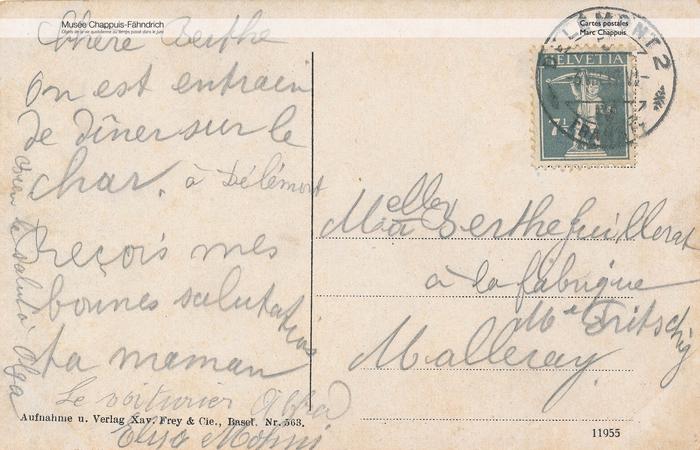 Musée Chappuis-Fähndrich
Objets de la vie quotidienne du temps passé dans le Jura
Cartes postales
Marc Chappuis
Chère Berthe
On est entrain
de dîner sur le
char. à Délémont
Reçois mes
bonnes salutations
ta maman
Le voiturier
Elise
le salut à Olga
DELÉMONT 2
HELVETIA
7½
Melle
Berthe Juillerat
à la fabrique
Malleray
Aufnahme u. Verlag Xav. Frey & Cie., Basel. Nr. 563.
11955